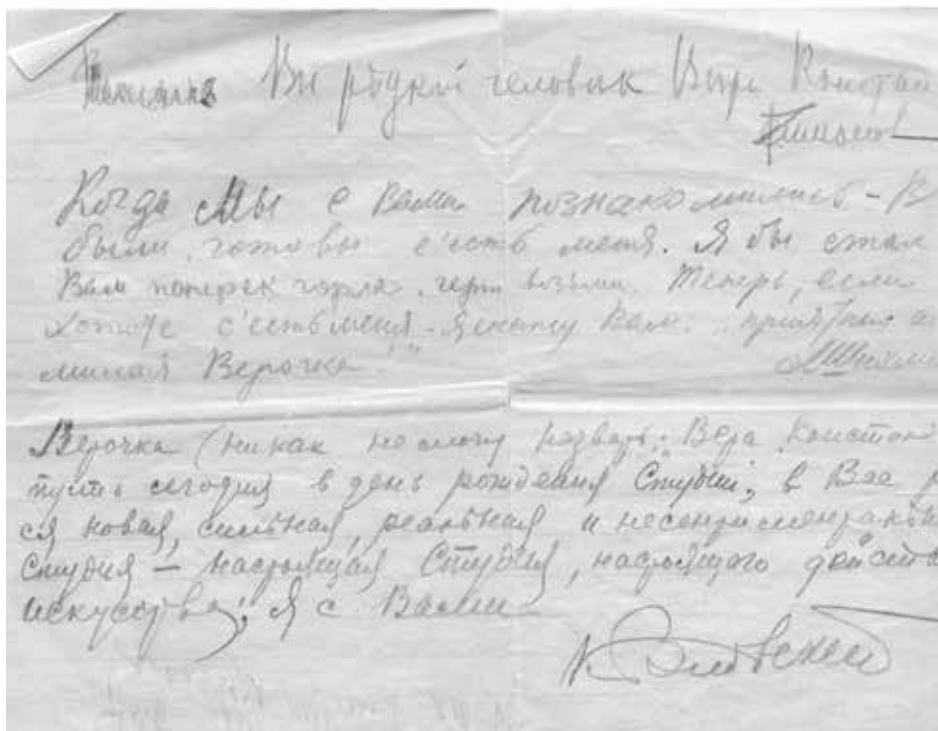 Вы рѣдкій человѣк Вѣра Констан
Когда Мы с Вами познакомились - В
были готовы с'есть меня. Я бы стал
Вам поперек горла, черт возьми. Теперь, если
хотите с'есть меня - я скажу Вам: „приятного
милая Верочка!"
Верочка (никак не могу назвать: Вера Констан
пусть сегодня в день рождения Студии, в Вас р
ся новая, сильная, реальная и несентиментальн
студия — настоящая Студия, настоящего действ
искусства; Я с Вами